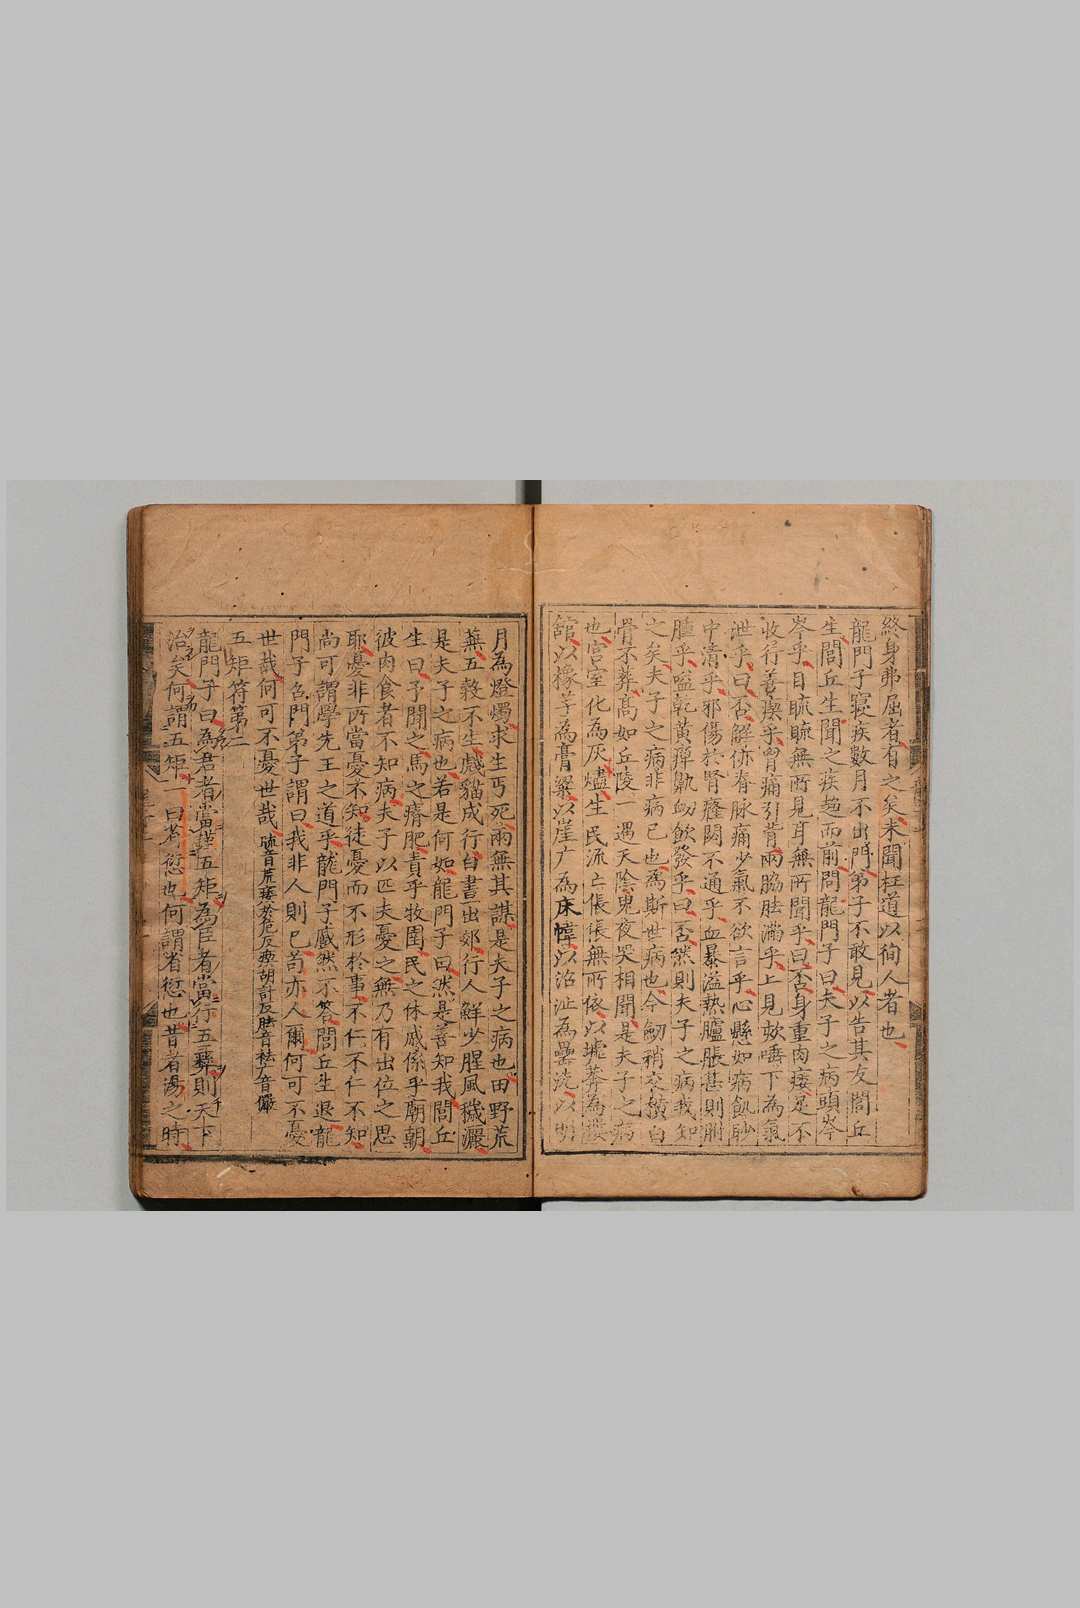 終身弗屈者有之矣未聞枉道以徇人者也
龍門子寢疾數月不出門弟子不敢見以告其友閭丘
生閭丘生聞之疾趨而前問龍門子曰夫子之病頭岑
岑乎目䀮䀮無所見耳無所聞乎曰否身重肉痿足不
收行善瘈乎胃痛引背兩脇胠滿乎上見欬唾下為氣
泄乎曰否解㑊脊脉痛少氣不欲言乎心懸如病飢䏚
中清乎邪傷於腎癃閟不通乎血暴溢熱臚脹甚則胕
腫乎嗌乾黃癉鼽衂飲發乎曰否然則夫子之病我知
之矣夫子之病非病己也為斯世病也今
骨不葬高如丘陵一遇天陰鬼夜哭相聞是夫子之病
也宮室化為灰燼生民流亡倀倀無所依以墟莽為
舘以橡芧為膏粱以崖广為床幃以洿沚為罍洗以明
月為燈燭求生丐死兩無其謀是夫子之病也田野荒
蕪五穀不生虥貓成行白晝出郊行人鮮少腥風穢灑
是夫子之病也若是何如龍門子曰然是善知我閭丘
生曰予聞之馬之瘠肥責乎牧圉民之休戚係乎廟朝
彼肉食者不知病夫子以匹夫憂之無乃有出位之思
耶憂非所當憂不知徒憂而不形於事不仁不仁不知
尚可謂學先王之道乎龍門子戚然不答閭丘生退龍
門子召門弟子謂曰我非人則已苟亦人爾何可不憂
世哉何可不憂世哉 䀮音荒痿於危反瘈胡計反胠音祛广音儼
五矩符第二
龍門子曰為君者當謹五矩為臣者當行五彞則天下
治矣何謂五矩一曰省愆也何謂省愆也昔者湯之時